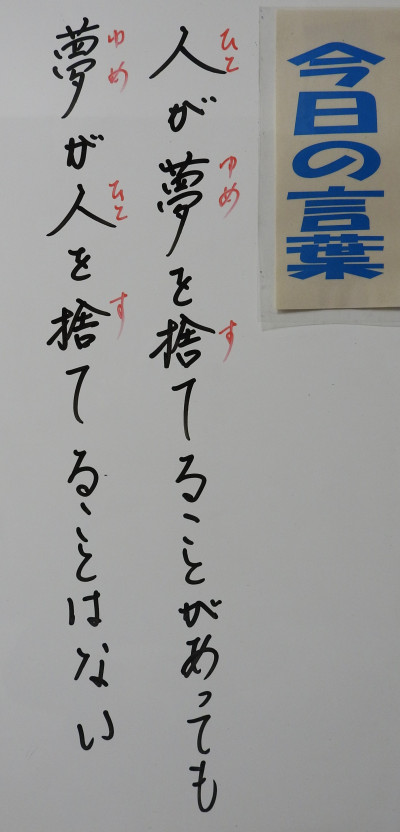 今日の言葉
人が夢を捨てることがあっても
ひと
ゆめ
す
夢が人を捨てることはない
ゆめ
ひと
す